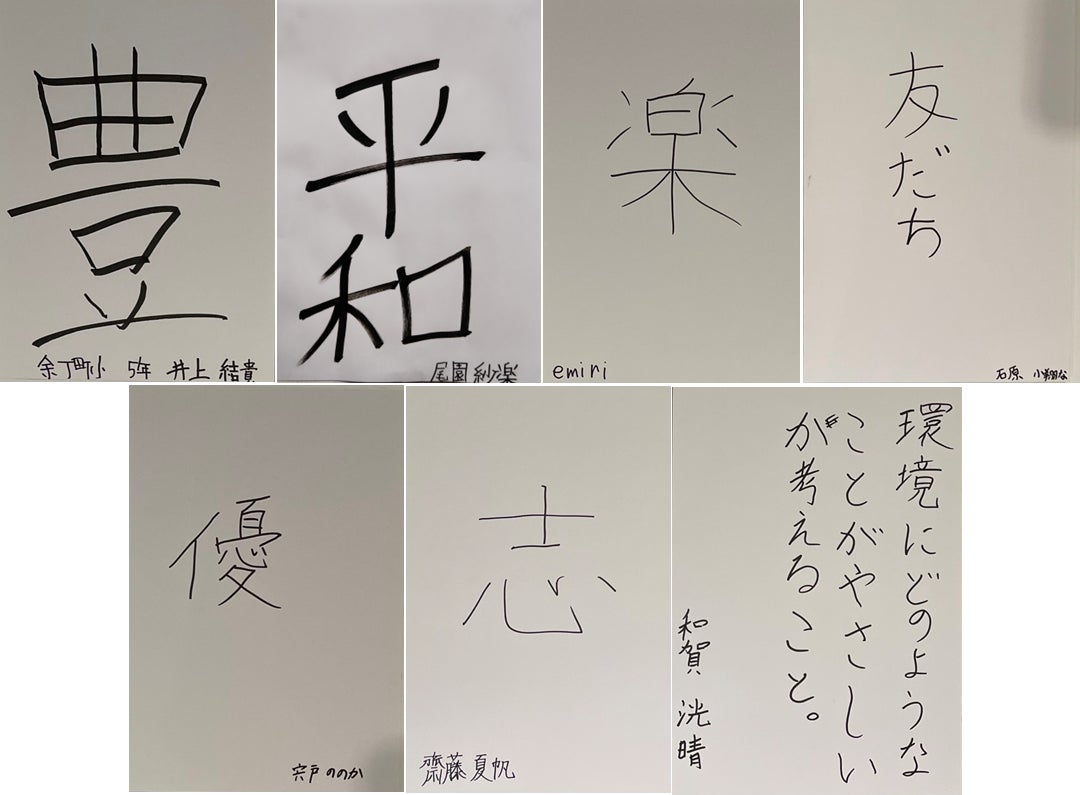 豊
余丁町小 5年 井上 結貴
平
和
尾園 紗楽
楽
emiri
友
だ
ち
優
宍戸 ののか
志
齋藤 夏帆
環境にどのような
ことがやさしい
が考えること。
和賀 洸晴